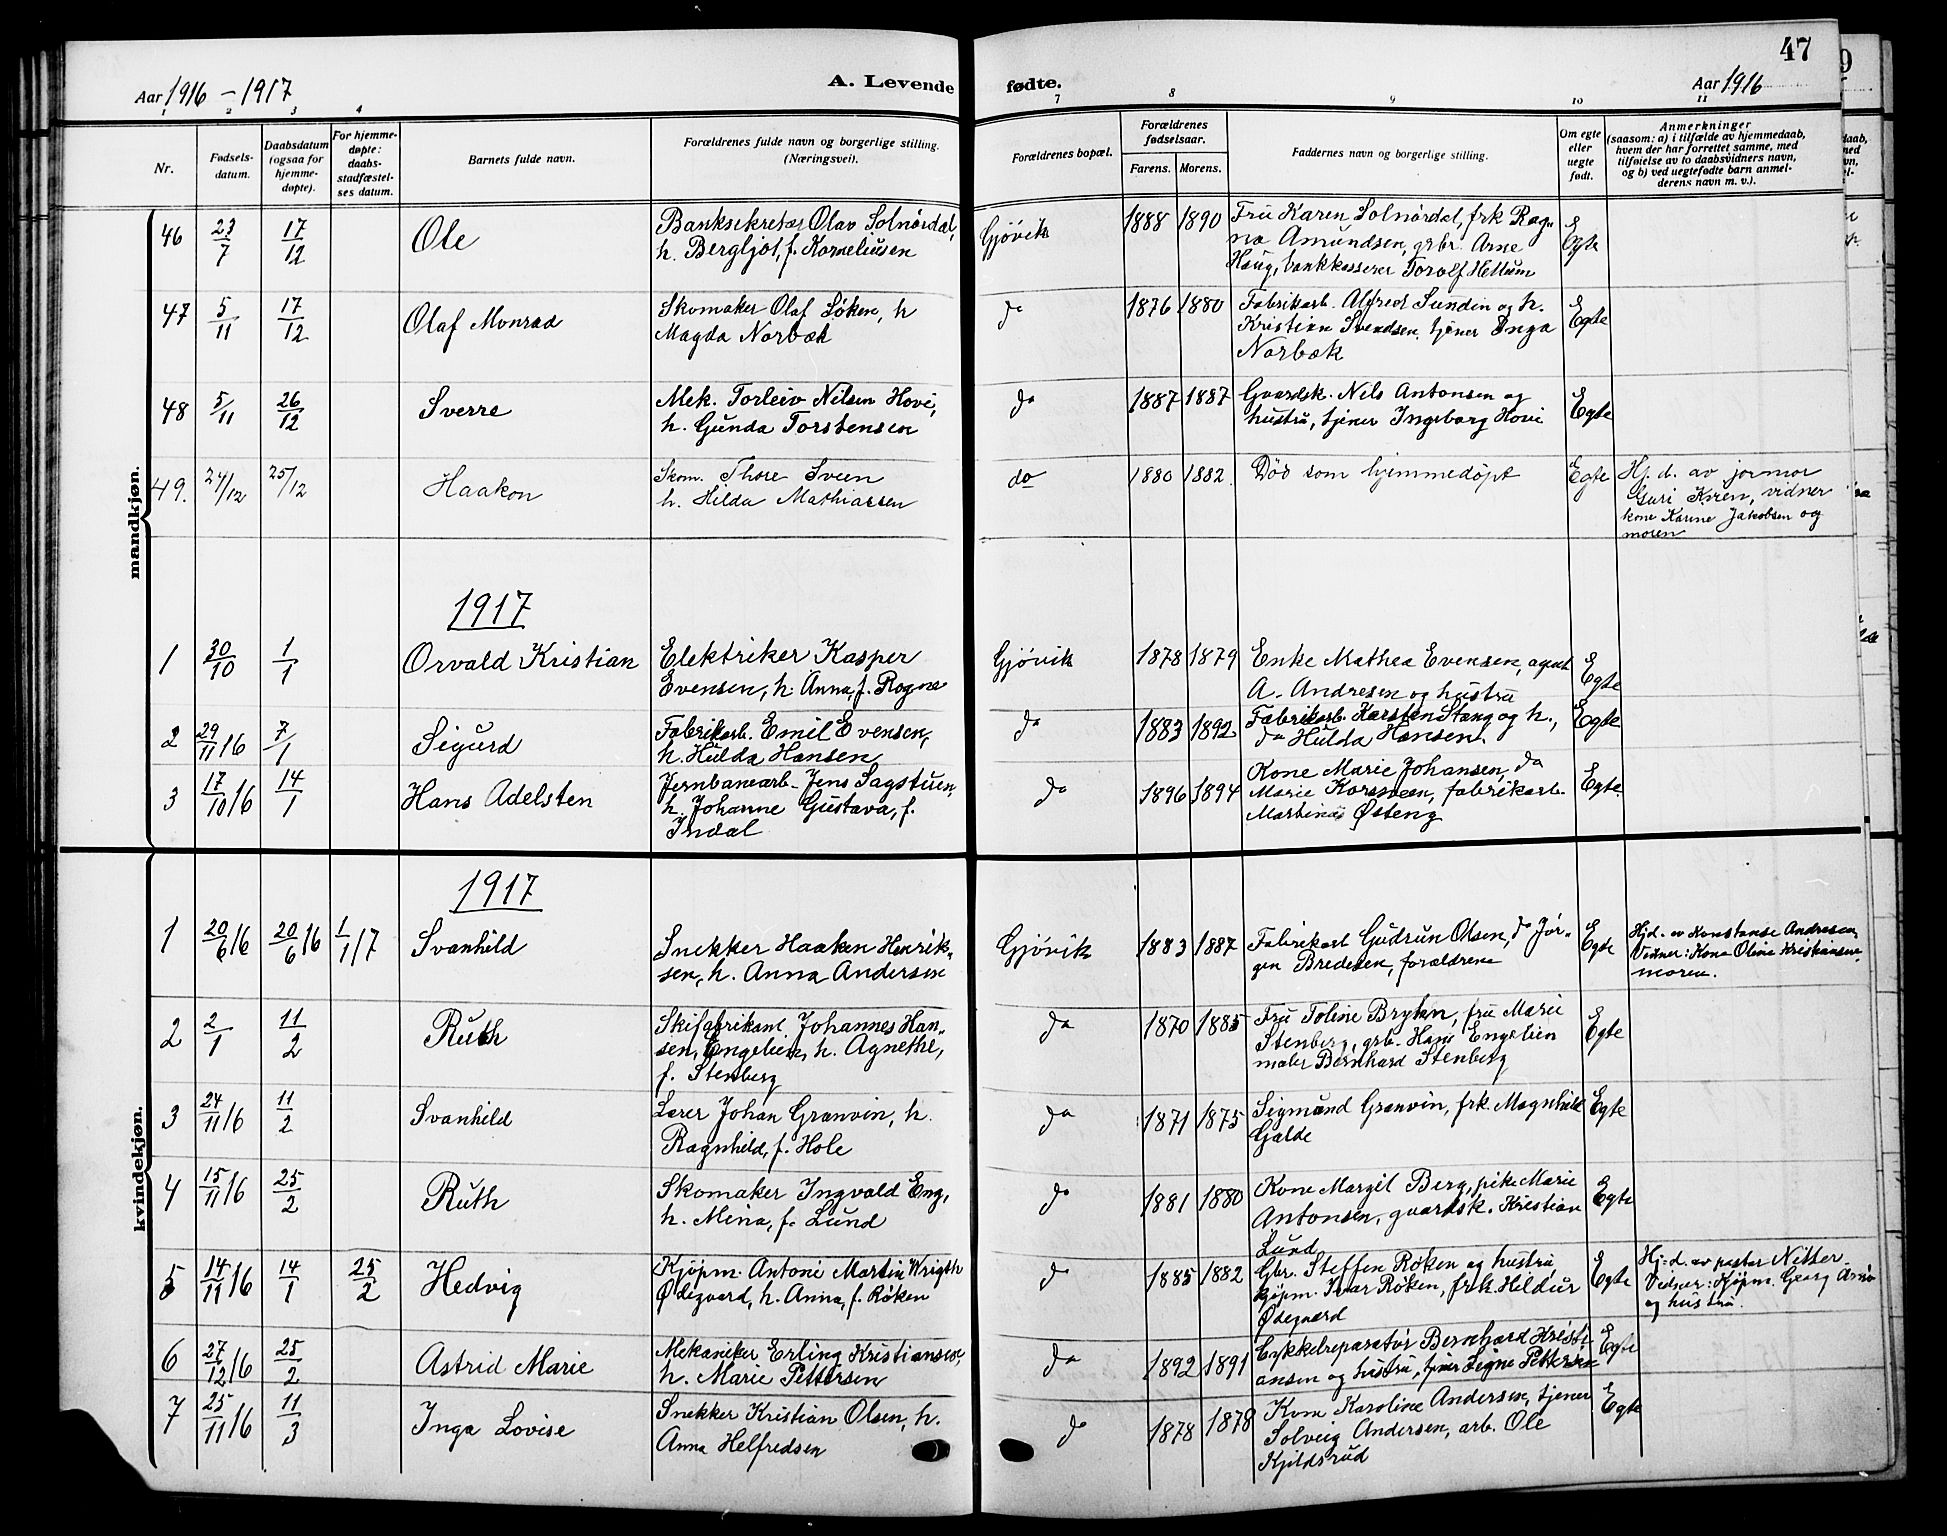 47
Aar 1916 - 1917
A. Levende
fødte.
Aar 1916
1 2 3 4
7 8 9 10 11
Nr.
Fødsels-
datum.
Daabsdatum
(ogsaa for
hjemme-
døpte).
For hjemme-
døpte:
daabs-
stadfæstel-
ses datum.
Barnets fulde navn.
Forældrenes fulde navn og borgerlige stilling.
(Næringsvei).
Forældrenes bopæl.
Forældrenes
fødselsaar.
Farens. Morens.
Faddernes navn og borgerlige stilling.
Om egte
eller
uegte
født.
Anmerkninger
(saasom: a) i tilfælde av hjemmedaab,
hvem der har forrettet samme, med
tilføielse av to daabsvidners navn,
og b) ved uegtefødte barn anmel-
derens navn m. v.).
mandkjøn.
46 23/7 17/12 Ole
Banksekretær Olav Solnördal,
h. Bergljot, f. Korneliussen
Gjövik 1888 1890
Fru Karen Solnördal, frk Rag-
na Amundsen, grbr. Arne
Haug, bankkasserer Torolf Hellum
Egte
47 5/11 17/12 Olaf Monrad
Skomaker Olaf Löken, h
Magda Norbæk
do 1876 1880
Fabrikarb. Alfred Sundin og h.
Kristian Svendsen, tjener Inga
Norbæk
Egte
48 5/11 26/12 Sverre
Mek. Torleiv Nilsen Hovi,
h. Gunda Torstensen
do 1887 1887
Gvardsk. Nils Antonsen og
hustru, tjener Ingeborg Hovi
Egte
49. 24/12 25/12 Haakon
Skom. Thore Sveen
h. Hilda Mathiassen
do 1880 1882.
Död som hjemmedöpt
Egte
Hj. d. av jormor
Guri Kiren, vidner
kone Karine Jakobsen og
moren
1917
1 30/10 1/1 Orvald Kristian
Elektriker Kasper
Evensen, h. Anna, f. Rogne
Gjövik 1878 1879
Enke Mathea Evensen, agent
A. Andresen og hustru
Egte
2 29/11 16 7/1 Sigurd
Fabrikarb. Emil Evensen,
h. Hulda Hansen
do 1883 1892
Fabrikarb. Karsten Stang og h.,
do Hulda Hansen.
Egte
3 17/10 16 14/1 Hans Adelsten
Jernbanearb. Jens Sagstuen,
h. Johanne Gustava, f.
Indal
do 1896 1894
Kone Marie Johansen, do
Marie Korsveen, fabrikarb.
Martinus Østeng
Egte.
kvindekjøn.
1917
1 20/6 16 20/6 16 1/1 17 Svanhild
Snekker Haaken Henrik-
sen, h. Anna Andersen
Gjövik 1883 1887
Fabrikarb Gudrun Olsen, do Jör-
gen Bredesen, forældrene
Egte
Hjd. av Konstanse Andresen,
Vidner: Kone Oline Kristiansen,
moren.
2 2/1 11/2 Ruth
Skifabrikant Johannes Han-
sen, Engelien, h. Agnethe,
f. Stenberg
do 1870 1885
Fru Toline Bryhn, fru Marie
Stenberg, grb. Hans Engelien
maler Bernhard Stenberg
Egte
3 24/11 16 11/2 Svanhild
Lærer Johan Granvin, h.
Ragnhild, f. Hole
do 1871 1875
Sigmund Granvin, frk. Magnhild
Gjelde
Egte
4 15/11 16 25/2 Ruth
Skomaker Ingvald Eng,
h. Mina, f. Lund
do 1881 1880
Kone Margit Berg, pike Marie
Antonsen, gvardsk. Kristian
Lund
Egte
5 14/11 16 14/1 25/2 Hedvig
Kjöpm. Antoni Martin Wrigth
Ødegaard, h. Anna, f. Röken
do 1885 1882
Gbr. Steffen Röken og hustru,
kjöpm. Ivar Röken, frk. Hildur
Ödegaard
Egte
Hj-d. av pastor Nitter
Vidner: Kjöpm. Georg
og hustru.
6 27/12 16 25/2 Astrid Marie
Mekaniker Erling Kristiansen,
h. Marie Pettersen
do 1892 1891
Cykkelreparatör Bernhard Kristi-
ansen og hustru, tjener Signe Pettersen
Egte
7 25/11 16 11/3 Inga Lovise
Snekker Kristian Olsen, h.
Anna Helfredsen
do 1878 1878
Kone Karoline Andersen, tjener
Solveig Andersen, arb. Ole
Kjildsrud
Egte